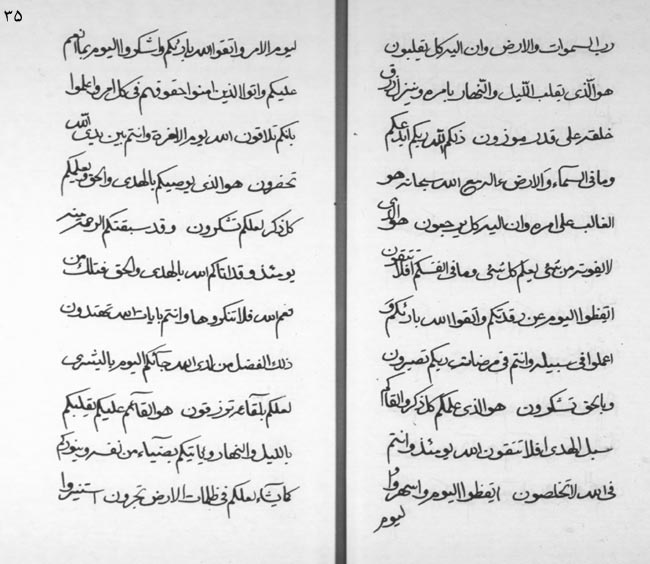 رب السموات والارض وان اليه كل يقلبون
هو الذى يقلب الليل والنهار بامره وينزل رزق
خلقه على قدر موزون ذلكم الله ربكم ابدعكم
وما فى السمآء والارض مع الله سبحانه هو
الغالب على امره وان اليه كل يرجعون هو الذى
لا يفوته من شئ يعلم كل شئ وما فى انفسكم افلا تتقون
اتقظوا اليوم عن رقدتكم واتقوا الله بارئكم و
اعملوا فى سبيله وانتم فى مرضات ربكم تصبرون
وبالحق تشكرون هو الذى علمكم كل ذكر والقاكم
سبل الهدى افلا تتقون الله يومئذ وانتم
فى الله لا تخلصون اتقظوا اليوم واسهروا
ليوم
٣٥
ليوم الامر واتقوا الله بارئكم واشكروا اليوم بما انعم
عليكم واتوا الذين امنوا حقوقهم فى كل امر واعلموا
بانكم تلاقون الله يوم الاخرة وانتم بين يدى الله
تحضرون هو الذى يوصيكم بالهدى والحق ويعلمكم
كل ذكر لعلكم تشكرون وقد سبقتكم الرحمة منه
يومئذ وقد اتاكم الله بالهدى والحق فتلك من
نعم الله فلا تنكروها وانتم بايات الله تهتدون
ذلك الفضل من لدى الله جائكم اليوم بالبشرى
لعلكم بلقائه ترزقون هو القائم عليكم يقلبكم
بالليل والنهار وياتيكم بضياء من نفسه وينوركم
كما يشاء لعلكم فى ظلمات الارض تجرون استنيروا